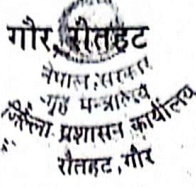 गौर, रौतहट
नेपाल सरकार
गृह मन्त्रालय
जिल्ला प्रशासन कार्यालय
रौतहट, गौर